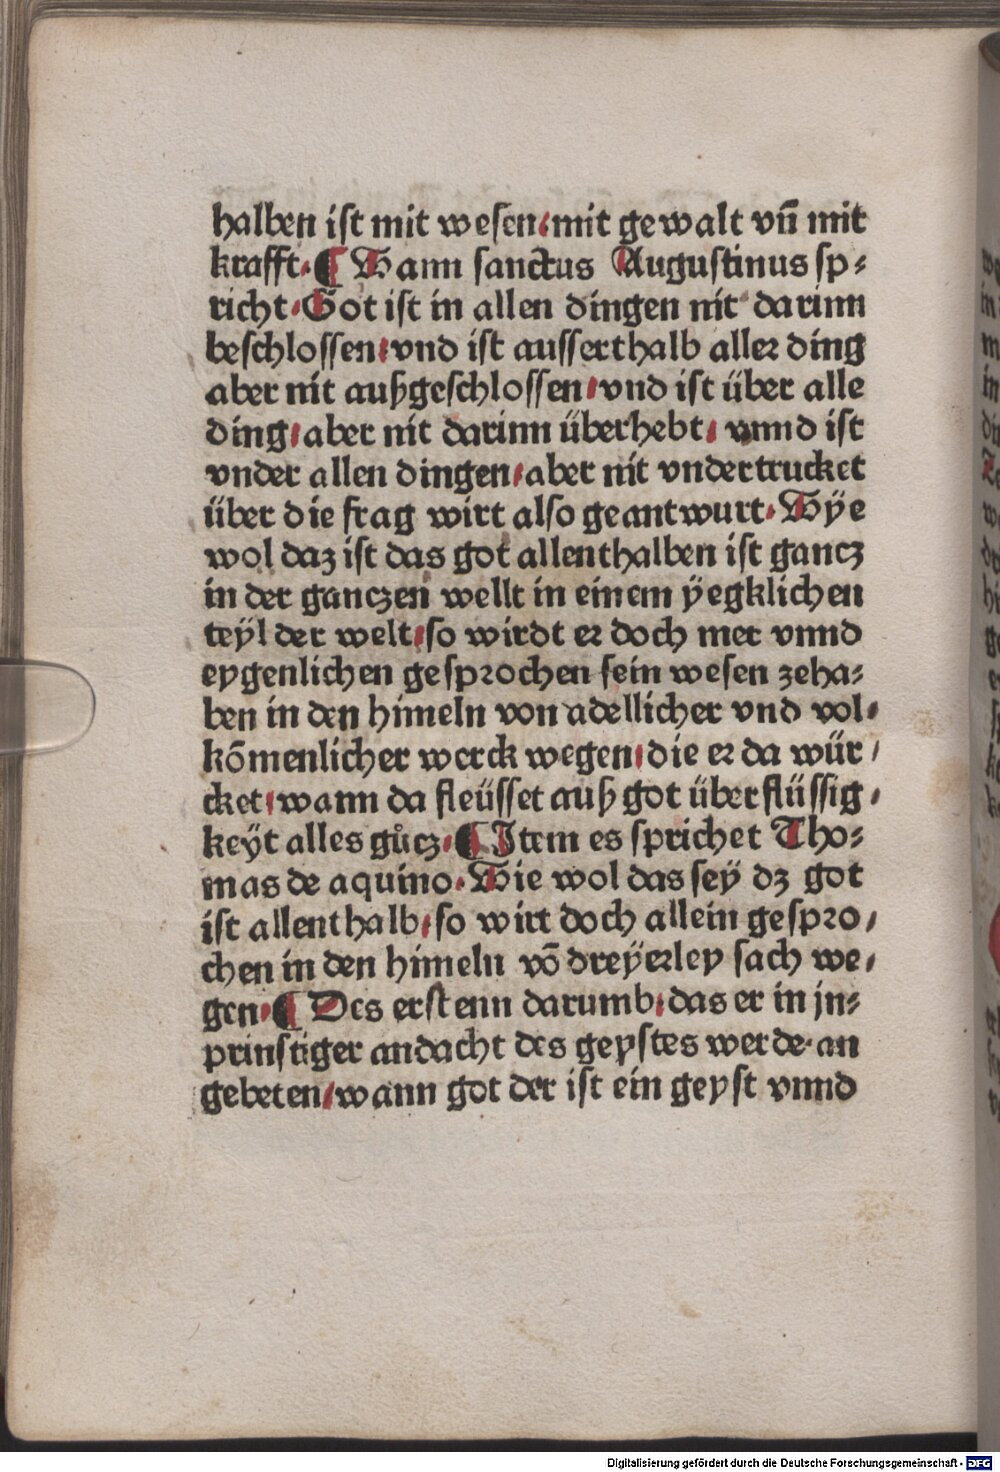 halben ist mit wesen/mit gewalt vñ mit
krafft. ¶ Wann sanctus Augustinus sp⸗
richt. Got ist in allen dingen nit darinn
beschlossen/vnd ist ausserthalb aller ding
aber nit außgeschlossen/vnd ist über alle
ding/aber nit darinn überhebt/ vnnd ist
vnder allen dingen/aber nit vndertrucket
über die frag wirt also geantwurt. Wÿe
wol daz ist das got allenthalben ist gancz
in der ganczen wellt in einem ÿegklichen
teÿl der welt/so wirdt er doch mer vnnd
eygenlichen gesprochen sein wesen zeha⸗
ben in den himeln von adellicher vnd vol⸗
kōmenlicher werck wegen/die er da wür⸗
cket/wann da fleüsset auß got überflüssig⸗
keÿt alles gůcz. ¶ Item es sprichet Tho⸗
mas de aquino. Wie wol das seÿ dz got
ist allenthalb/so wirt doch allein gespro⸗
chen in den himeln vō dreÿerley sach we⸗
gen. ¶ Des erstenn darumb/das er in jn⸗
prinstiger andacht des geystes werde an
gebeten/wann got der ist ein geyst vnnd
Digitalisierung gefördert durch die Deutsche Forschungsgemeinschaft - DFG